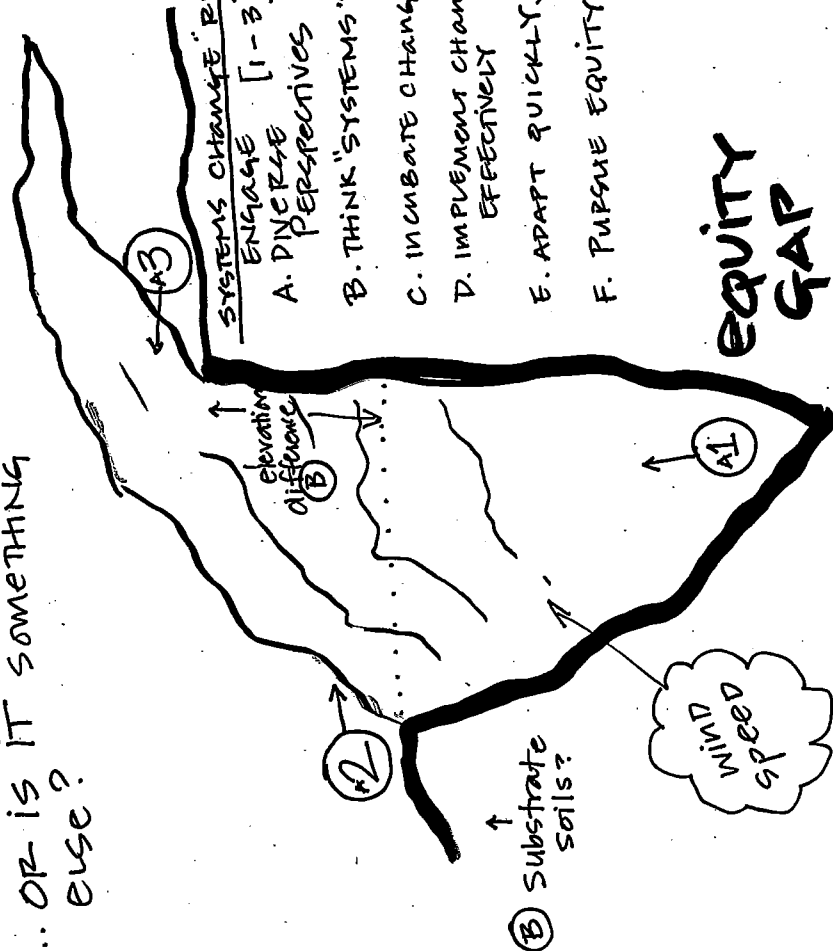 .. OR is IT something
else?
SYSTEMS CHANGE "R
ENGAGE [1-3]
A. DIVERSE
PERSPECTIVES
B. THINK "SYSTEMS"
C. INCUBATE CHANG
D. IMPLEMENT CHAN
EFFECTIVELY
E. ADAPT QUICKLY.
F. PURSUE EQUITY
A3
elevation
difference
B
A2
A1
B Substrate
soils?
WIND
SPEED
EQUITY
GAP